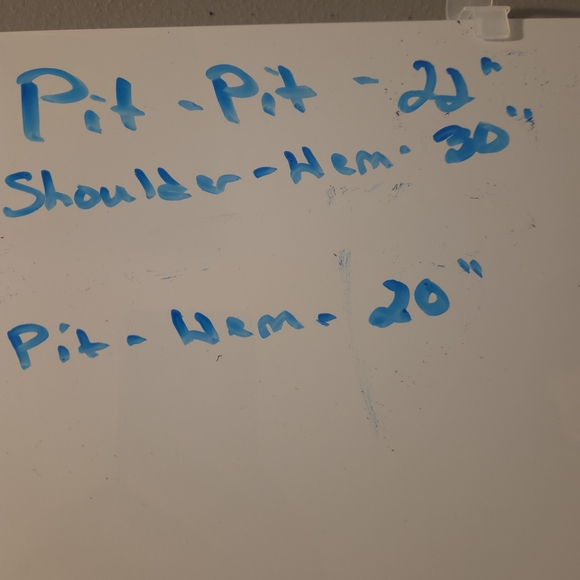 Pit - Pit - 22"
Shoulder - Hem - 30"
Pit - Hem - 20"